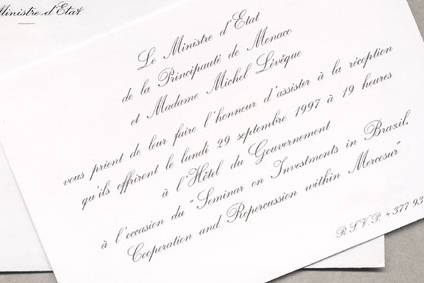 Ministre d'Etat
Le Ministre d'Etat
de la Principauté de Monaco
et Madame Michel Lévêque
vous prient de leur faire l'honneur d'assister à la réception
qu'ils offriront le lundi 29 septembre 1997 à 19 heures
à l'Hôtel du Gouvernement
à l'occasion du "Seminar on Investments in Brazil,
Cooperation and Repercussion within Mercosur"
R.S.V.P. +377 93